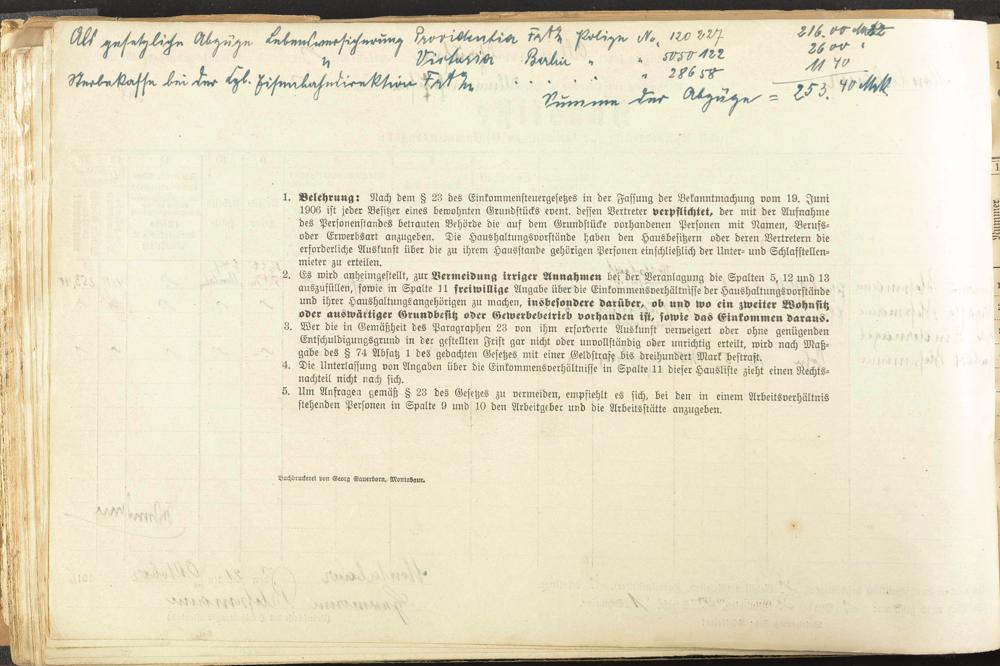 Als gesetzliche Abzüge Lebensversicherung Providentia Frkft Polize No. 120 227 216.00 Mk
" Victoria Berlin " " 5050 122 26 00 "
Sterbekasse bei der Kgl. Eisenbahndirektion Frkft . . . . " 286 58 11 40
Summe der Abzüge = 253.40 Mk
1. Belehrung: Nach dem § 23 des Einkommensteuergesetzes in der Fassung der Bekanntmachung vom 19. Juni
1906 ist jeder Besitzer eines bewohnten Grundstücks event. dessen Vertreter verpflichtet, der mit der Aufnahme
des Personenstandes betrauten Behörde die auf dem Grundstücke vorhandenen Personen mit Namen, Berufs-
oder Erwerbsart anzugeben. Die Haushaltungsvorstände haben den Hausbesitzern oder deren Vertretern die
erforderliche Auskunft über die zu ihrem Hausstande gehörigen Personen einschließlich der Unter- und Schlafstellen-
mieter zu erteilen.
2. Es wird anheimgestellt, zur Vermeidung irriger Annahmen bei der Veranlagung die Spalten 5, 12 und 13
auszufüllen, sowie in Spalte 11 freiwillige Angabe über die Einkommensverhältnisse der Haushaltungsvorstände
und ihrer Haushaltungsangehörigen zu machen, insbesondere darüber, ob und wo ein zweiter Wohnsitz
oder auswärtiger Grundbesitz oder Gewerbebetrieb vorhanden ist, sowie das Einkommen daraus.
3. Wer die in Gemäßheit des Paragraphen 23 von ihm erforderte Auskunft verweigert oder ohne genügenden
Entschuldigungsgrund in der gestellten Frist gar nicht oder unvollständig oder unrichtig erteilt, wird nach Maß-
gabe des § 74 Absatz 1 des gedachten Gesetzes mit einer Geldstrafe bis dreihundert Mark bestraft.
4. Die Unterlassung von Angaben über die Einkommensverhältnisse in Spalte 11 dieser Hausliste zieht einen Rechts-
nachteil nicht nach sich.
5. Um Anfragen gemäß § 23 des Gesetzes zu vermeiden, empfiehlt es sich, bei den in einem Arbeitsverhältnis
stehenden Personen in Spalte 9 und 10 den Arbeitgeber und die Arbeitsstätte anzugeben.
Buchdruckerei von Georg Sauerborn, Montabaur.